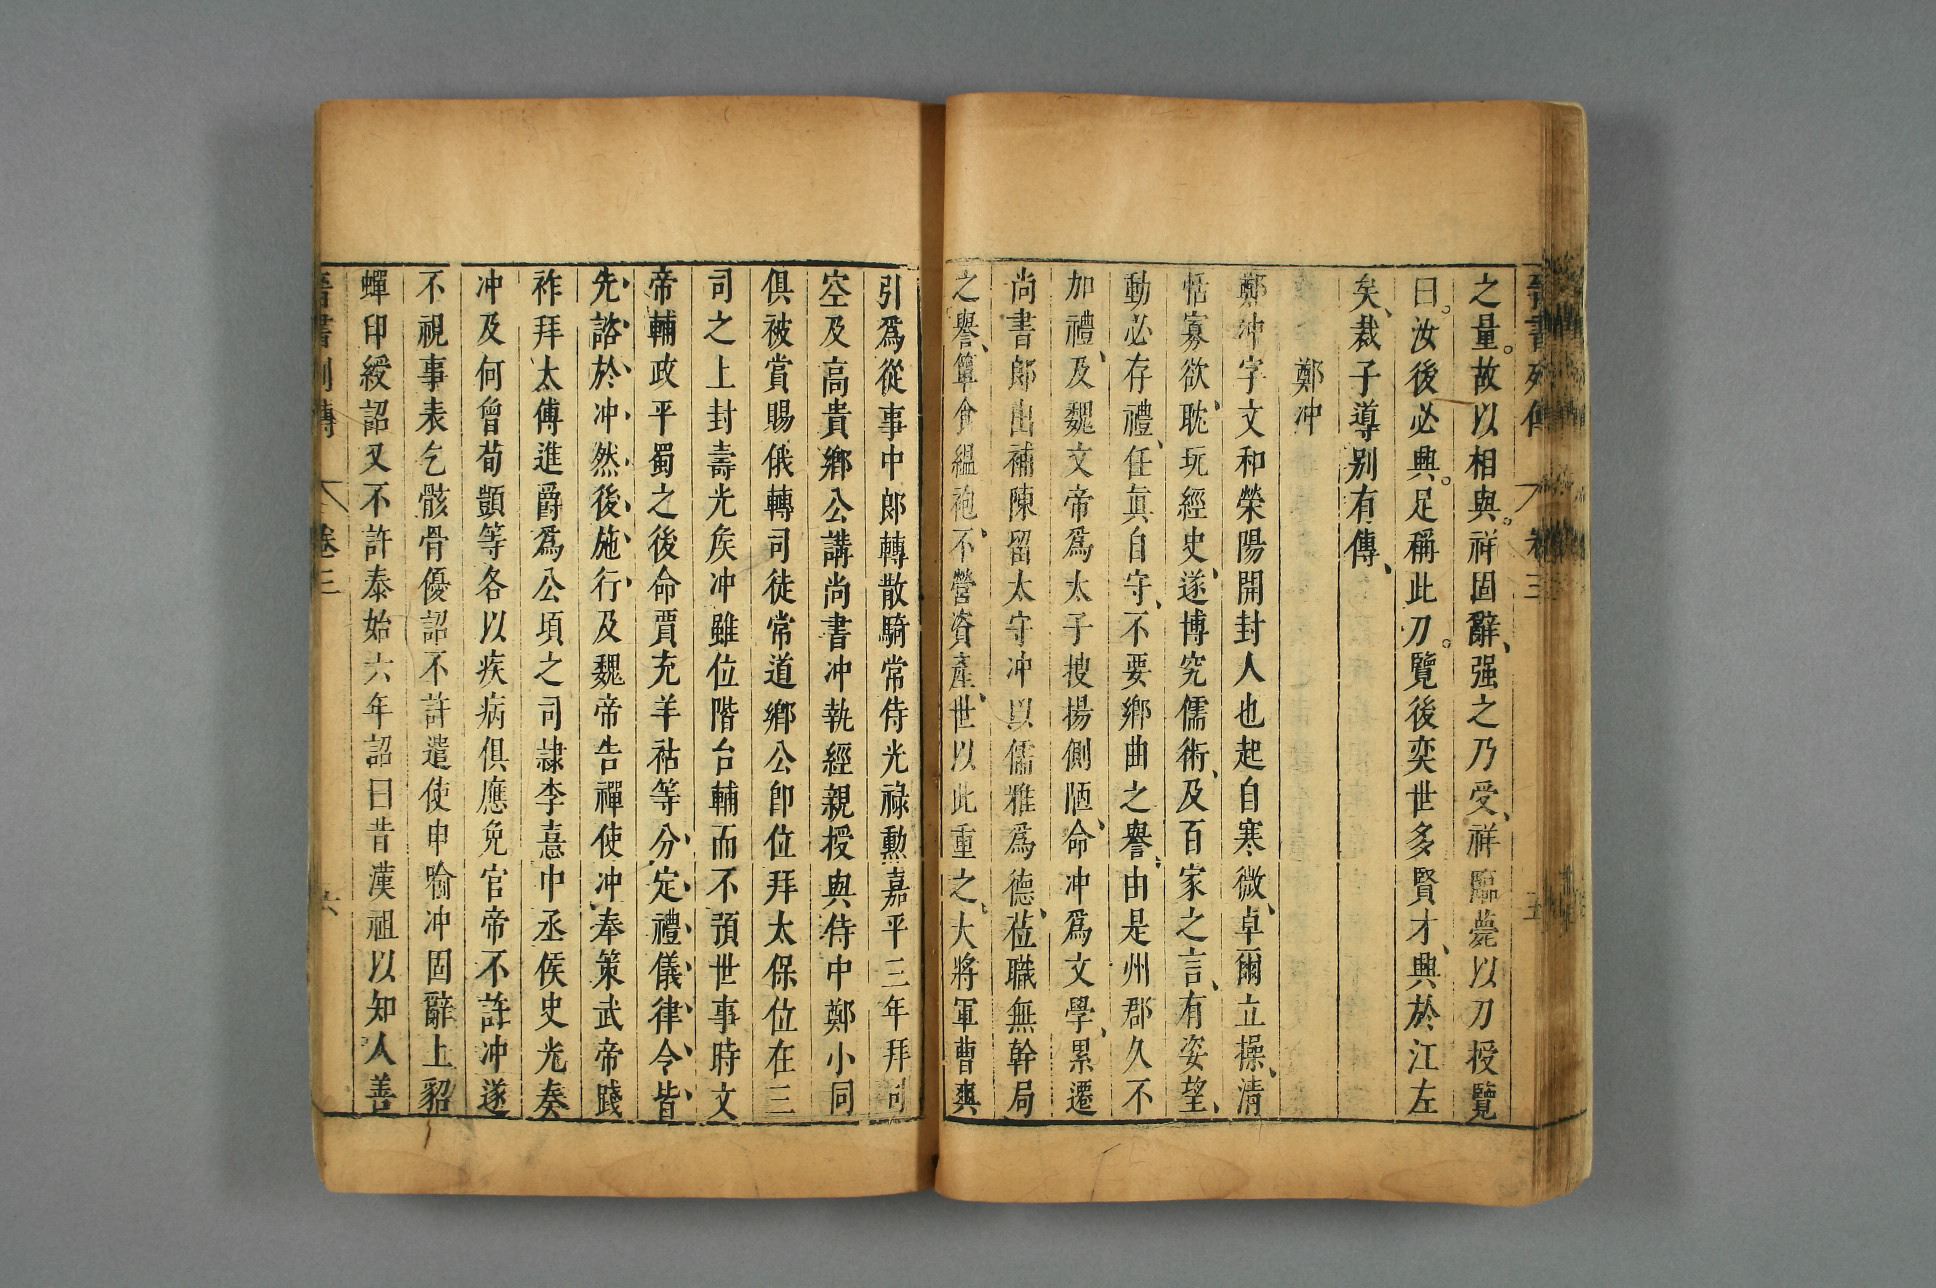 晉書列傳 卷三 五
之量。故以相與。祥固辭、强之乃受、祥臨薨以刀授覽
曰。汝後必興。足稱此刀。覽後奕世多賢才、興於江左
矣、裁子導别有傳、
鄭冲
鄭冲字文和榮陽開封人也起自寒微、卓爾立操、清
恬寡欲、耽玩經史、遂博究儒術、及百家之言、有姿望、
動必存禮、任眞自守、不要鄉曲之譽、由是州郡久不
加禮、及魏文帝爲太子搜揚側陋、命冲爲文學、累遷
尚書郎出補陳留太守冲以儒雅爲德、蒞職無幹局
之譽、簞食緼袍、不營資產、世以此重之、大將軍曹爽
引爲從事中郎轉散騎常侍光祿勲嘉平三年拜司
空及高貴鄉公講尚書冲執經親授與侍中鄭小同
俱被賞賜俄轉司徒常道鄉公卽位拜太保位在三
司之上封壽光矦冲雖位階台輔而不預世事時文
帝輔政平蜀之後命賈充羊祜等、分、定、禮、儀、律、令、皆、
先、諮、於、冲、然、後、施、行、及魏帝告禪使冲奉策武帝踐
祚拜太傅進爵爲公頃之司隷李憙中丞侯史光奏
冲及何曾荀顗等各以疾病俱應免官帝不許冲遂
不視事表乞骸骨優詔不許遣使申喻冲固辭上貂
蟬印綬詔又不許泰始六年詔曰昔漢祖以知人善
晉書列傳 卷三 六